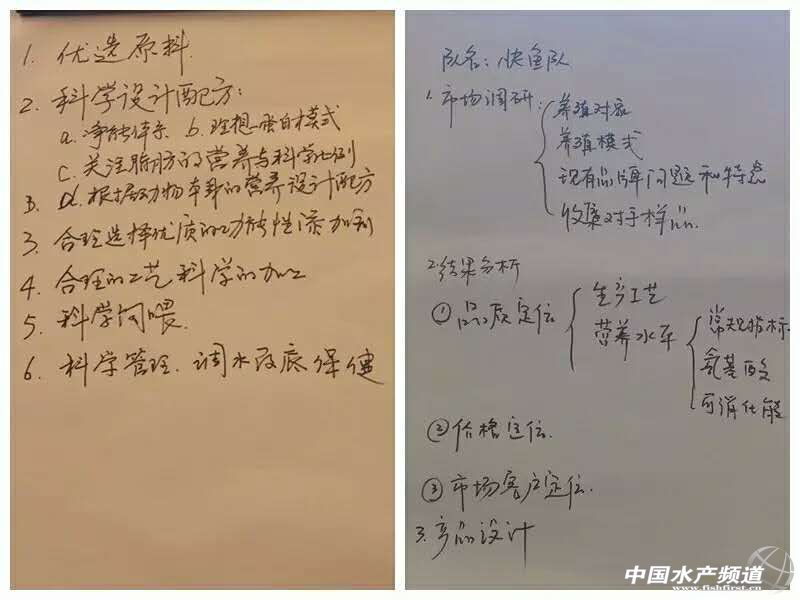 1. 优选原料
2. 科学设计配方:
a. 净能体系 b. 理想蛋白模式
c. 关注脂肪的营养与科学比例
3. d. 根据动物本身的营养设计配方
3. 合理选择优质的功能性添加剂
4. 合理的工艺科学的加工
5. 科学饲喂.
6. 科学管理. 调水改底保健
队名: 快鱼队
1. 市场调研:
养殖对象
养殖模式
现有品牌问题和特点
收集对手样品.
2. 结果分析
① 品质定位
生产工艺
营养水平
常规指标.
氨基酸
可消化能
② 价格定位.
③ 市场客户定位.
3. 产品设计
中国水产频道
www.fishfirst.cn